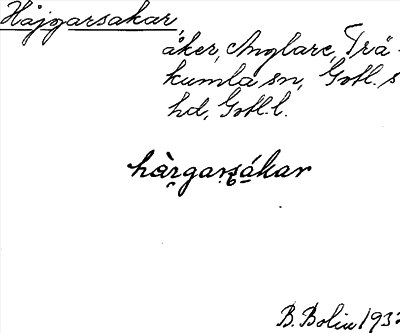 Håjgarsakar,
åker, Anglare, Trä-
kumla sn, Gotl. s
hd, Gotl. l.
hàrgarsákar
B. Bolin 193